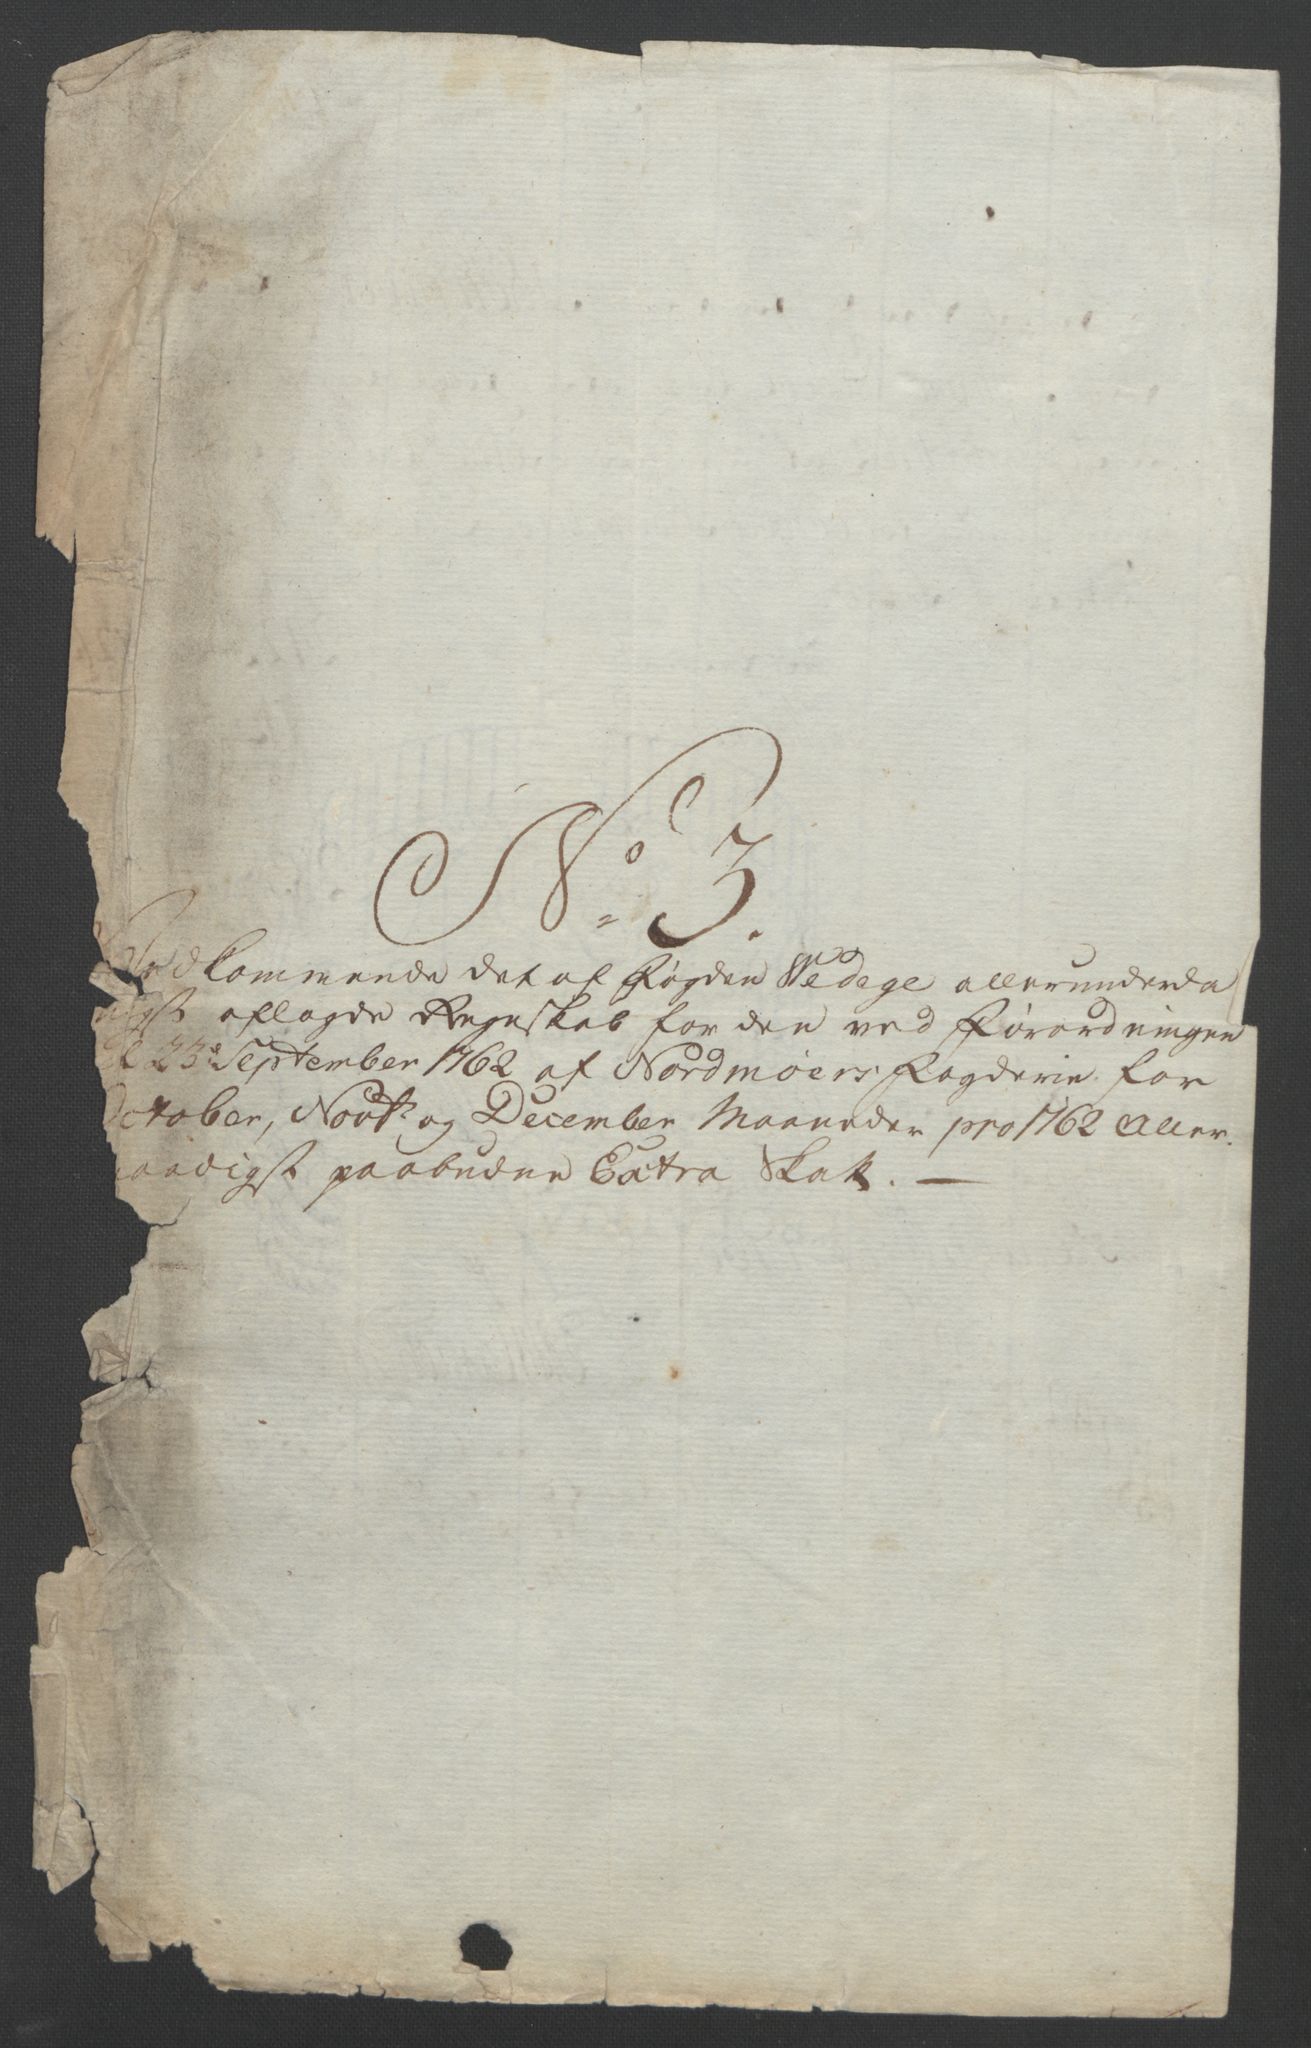 No: 3.
Vedkommende det af Fogden Wedege allerunderda
nigst aflagde Regnskab for den ved Forordningen
23de September 1762 af Nordmøers Fogderie for
October, Novb: og December Maaneder pro 1762 Aller-
naadigst paabudene Extra Skatt. —